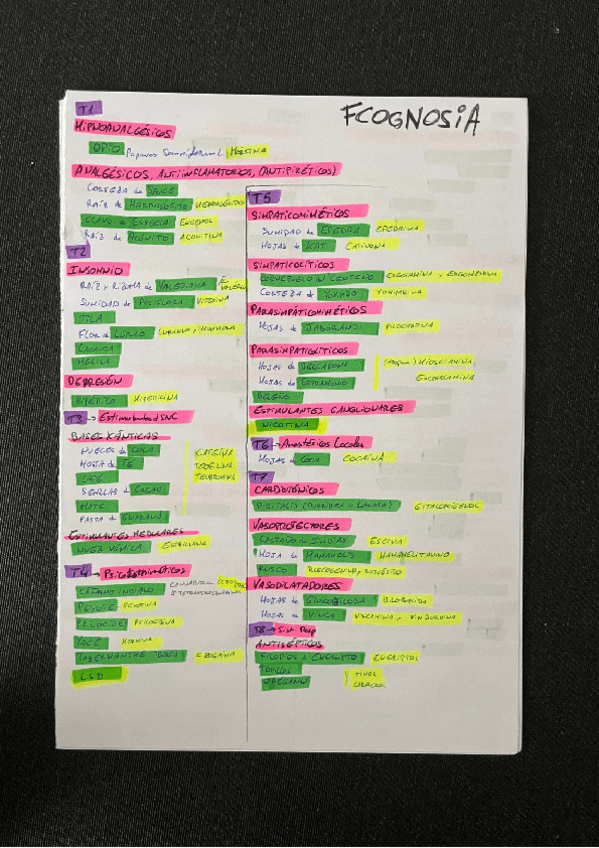 FCOGNOSIA
T1
HIPNOANALGÉSICOS
OPIO Papaver Somniferum L. MORFINA
ANALGÉSICOS, ANTIINFLAMATORIOS, (ANTIPIRÉTICOS)
CORTEZA de SAUCE
RAÍZ de HARPAGOFITO HARPAGÓSIDO
CLAVO de ESPECIA EUGENOL
RAÍZ de ACÓNITO ACONITINA
T2
INSOMNIO
RAÍZ y RIZOMA de VALERIANA
SUMIDAD de PASIFLORA VITEXINA
TILA
FLOR de LÚPULO LUPULONA y HUMULONA
LAVANDA
MELISA
DEPRESIÓN
HIPÉRICO HIPERICINA
T3 → Estimulantes del SNC
BASES XÁNTICAS
NUECES de COLA
HOJA de TÉ
CAFÉ
SEMILLAS de CACAO
MATE
PASTA de GUARANÁ
CAFEÍNA
TEOFILINA
TEOBROMINA
ESTIMULANTES MEDULARES
NUEZ VÓMICA ESTRICNINA
T4 → Psicodislépticos
CÁÑAMO INDIANO
PEYOTE
PSILOCIBE PSILOCIBINA
YAGÉ HARMINA
TABERNANTHE IBOGA IBOGAINA
LSD
T5
SIMPATICOMIMÉTICOS
SUMIDAD de EFEDRA EFEDRINA
HOJAS de KAT CATINONA
SIMPATICOLÍTICOS
CORNEZUELO DE CENTENO ERGOTAMINA y ERGOMETRINA
CORTEZA de YOHIMBO YOHIMBINA
PARASIMPÁTICOMIMÉTICOS
HOJAS de JABORANDI PILOCARPINA
PARASIMPATICOLÍTICOS
HOJAS de BELLADONA
HOJAS de ESTRAMONIO
BELEÑO
HIOSCIAMINA
ESCOPOLAMINA
ESTIMULANTES GANGLIONARES
NICOTINA
T6 → Anestésicos Locales
HOJAS de COCA COCAÍNA
T7
CARDIOTÓNICOS
DIGITALIS (PURPUREA o LANATA)
VASOPROTECTORES
CASTAÑO de INDIAS ESCINA
HOJA de HAMAMELIS HAMAMELITANINO
RUSCO RUSCOGENINA, RUSCÓSIDO
VASODILATADORES
HOJAS de GINKGO BILOBA BILOBALIDA
HOJAS de VINCA VINCAMINA y VINBURNINA
T8 → Sist Resp
ANTISÉPTICOS
FILODIOS de EUCALIPTO EUCALIPTOL
TOMILLO
ORÉGANO
TIMOL
CARVACROL